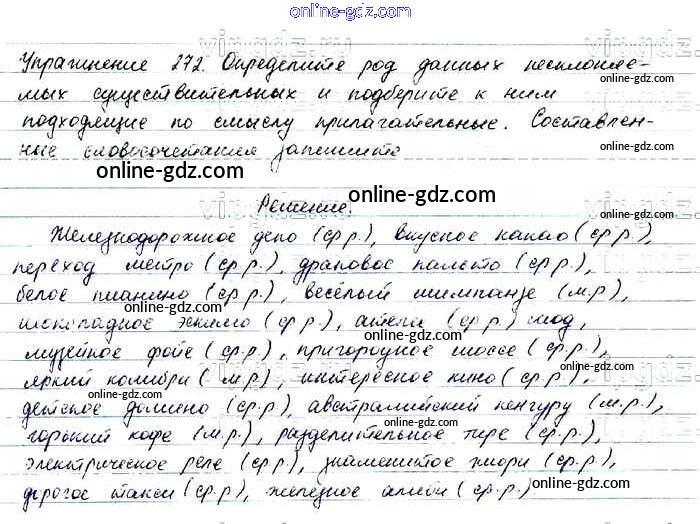 online-gdz.com
Упражнение 272. Определите род данных несклоняе-
мых существительных и подберите к ним
online-gdz.com
подходящие по смыслу прилагательные. Составлен-
ные словосочетания запишите
online-gdz.com
online-gdz.com
online-gdz.com
Решение:
Железнодорожное депо (ср.р.), вкусное какао (ср.р.),
online-gdz.com
переход метро (ср.р.), драповое пальто (ср.р.),
online-gdz.com
белое пианино (ср.р.), весёлый шимпанзе (м.р.),
online-gdz.com
шоколадное эскимо (ср.р.), ателье (ср.р.) мод,
online-gdz.com
музейное фойе (ср.р.), пригородное шоссе (ср.р.),
online-gdz.com
яркий колибри (м.р.), интересное кино (ср.р.),
online-gdz.com
детское домино (ср.р.), австралийский кенгуру (м.р.),
online-gdz.com
горький кофе (м.р.), разделительное тире (ср.р.),
online-gdz.com
электрическое реле (ср.р.), знаменитое жюри (ср.р.),
online-gdz.com
дорогое такси (ср.р), железное алиби (ср.р.)
online-gdz.com